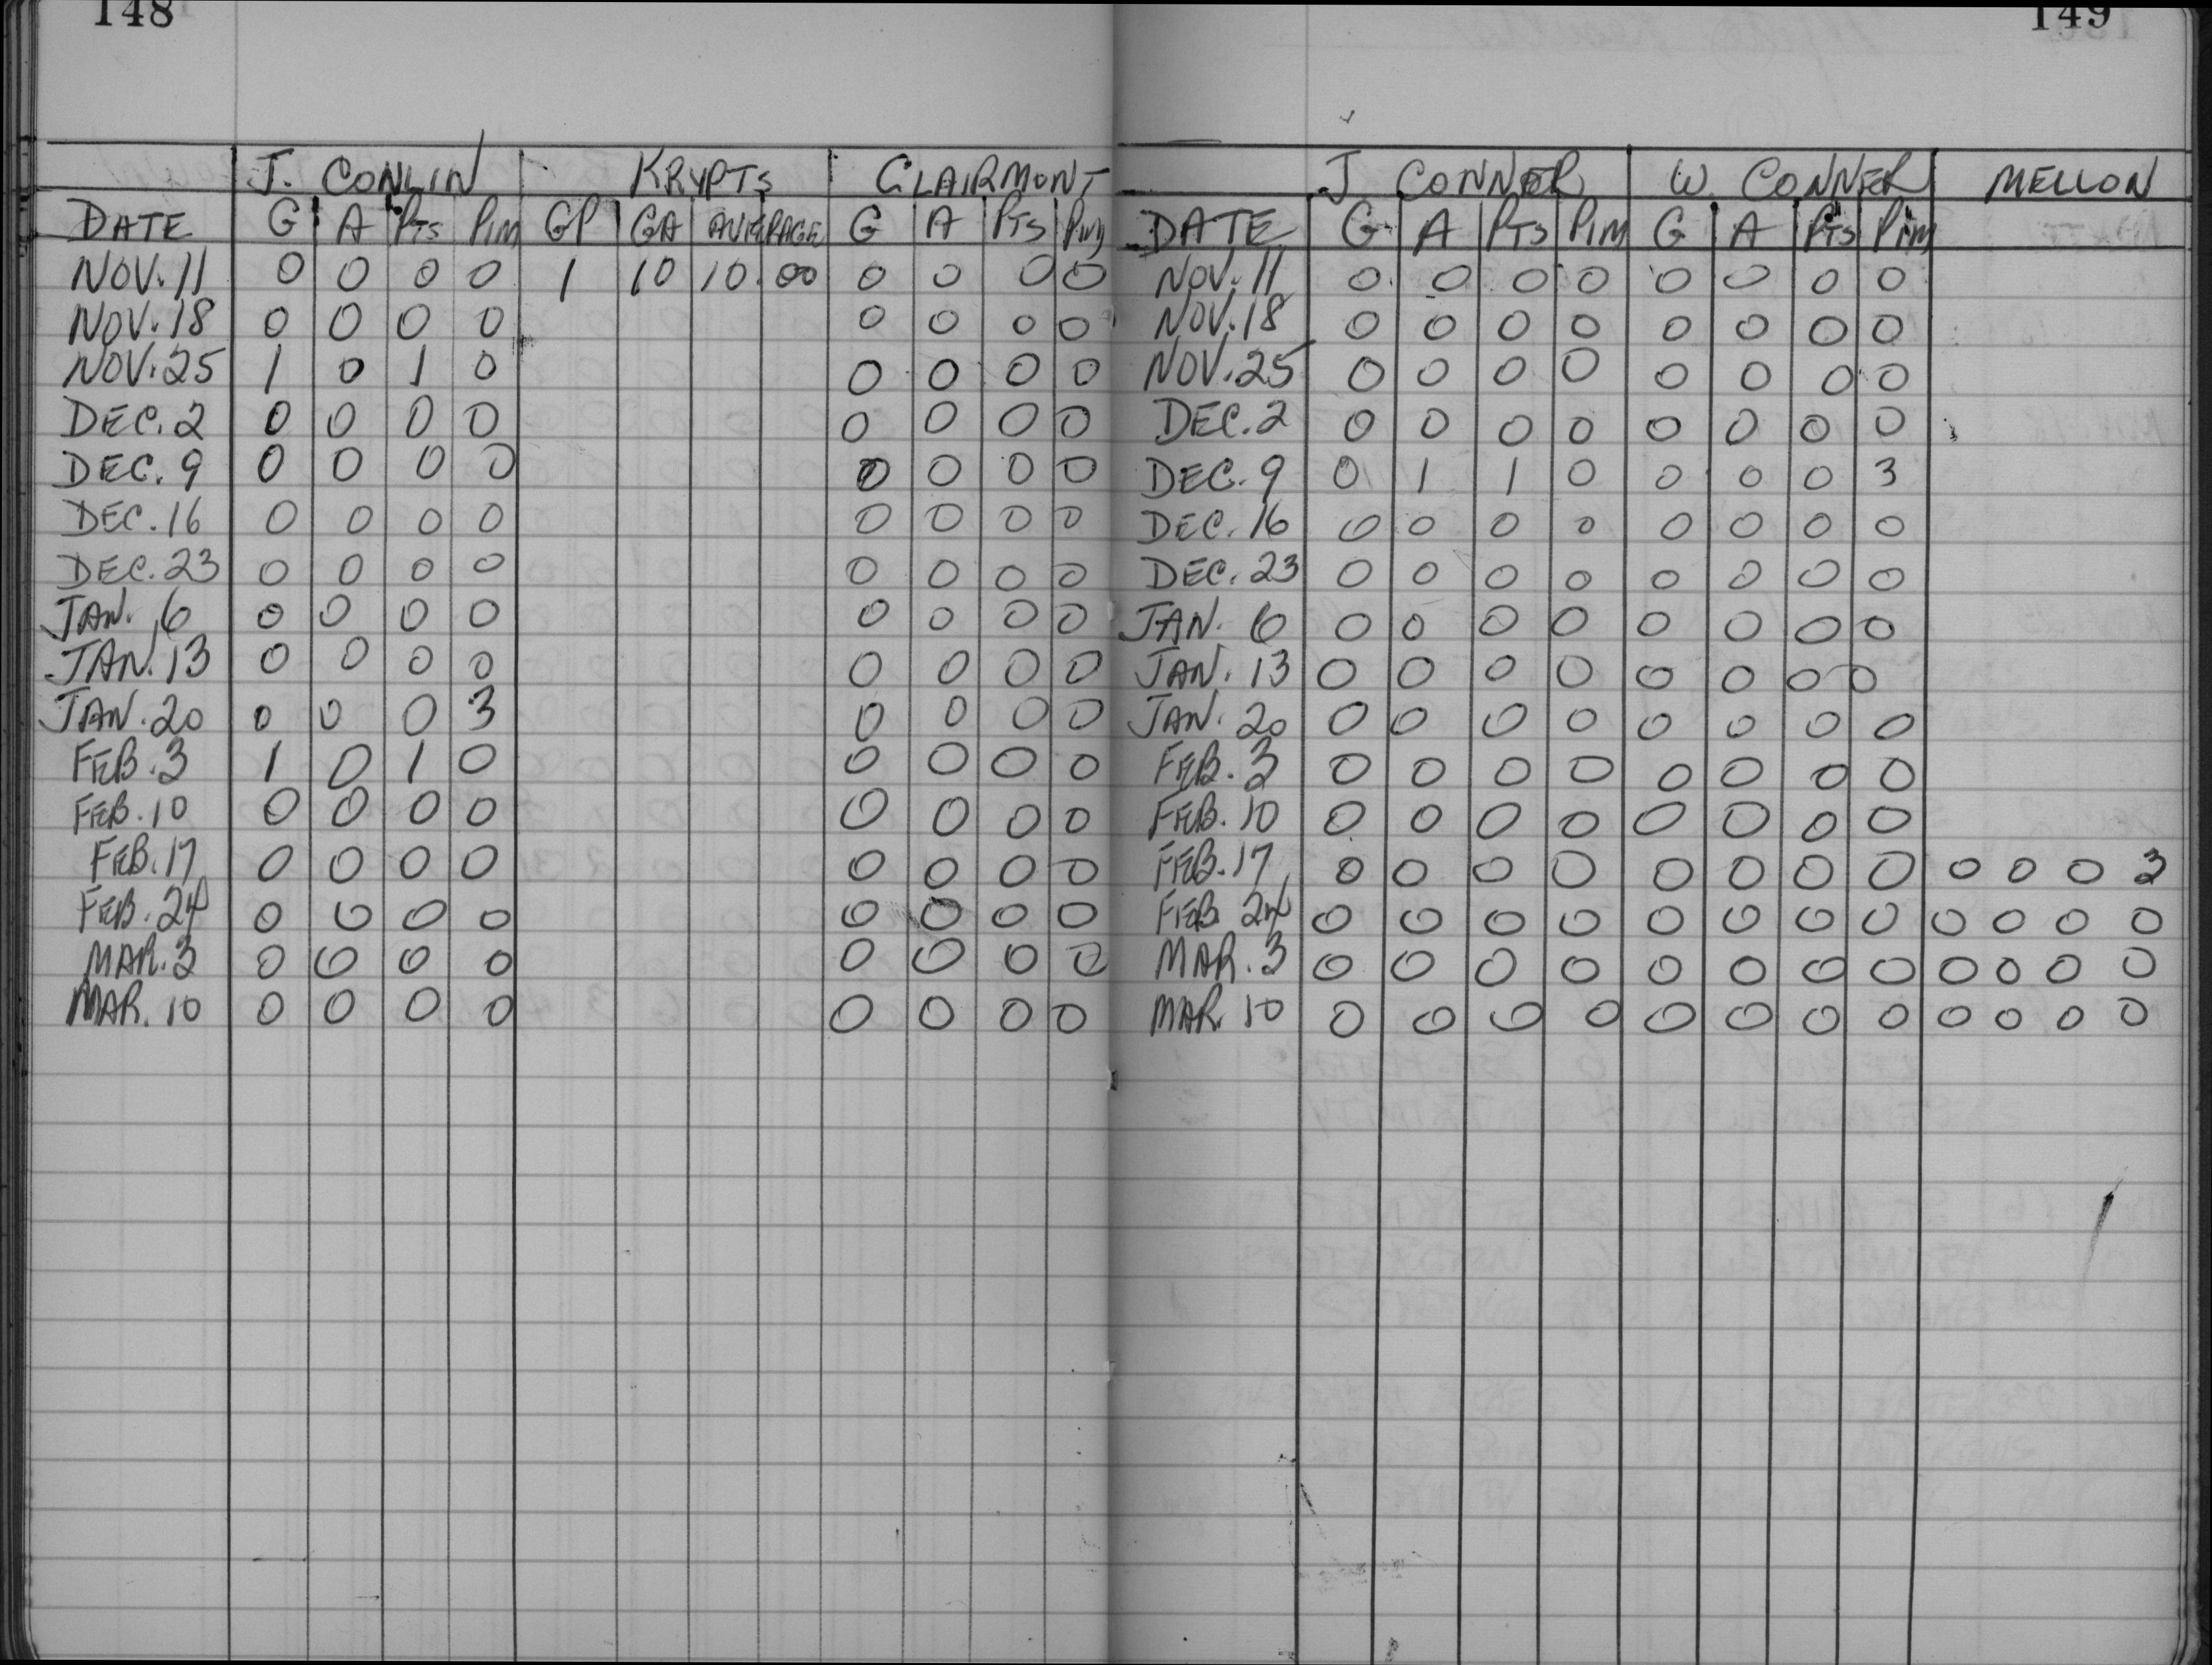 148
J. CONLIN KRYPTS CLAIRMONT
DATE G A PTS PIM GP GA AVERAGE G A PTS PIM
NOV. 11 0 0 0 0 1 10 10.00 0 0 0 0
NOV. 18 0 0 0 0 0 0 0 0
NOV. 25 1 0 1 0 0 0 0 0
DEC. 2 0 0 0 0 0 0 0 0
DEC. 9 0 0 0 0 0 0 0 0
DEC. 16 0 0 0 0 0 0 0 0
DEC. 23 0 0 0 0 0 0 0 0
JAN. 6 0 0 0 0 0 0 0 0
JAN. 13 0 0 0 0 0 0 0 0
JAN. 20 0 0 0 3 0 0 0 0
FEB. 3 1 0 1 0 0 0 0 0
FEB. 10 0 0 0 0 0 0 0 0
FEB. 17 0 0 0 0 0 0 0 0
FEB. 24 0 0 0 0 0 0 0 0
MAR. 3 0 0 0 0 0 0 0 0
MAR. 10 0 0 0 0 0 0 0 0
149
J CONNER W CONNER MELLON
DATE G A PTS PIM G A PTS PIM
NOV. 11 0 0 0 0 0 0 0 0
NOV. 18 0 0 0 0 0 0 0 0
NOV. 25 0 0 0 0 0 0 0 0
DEC. 2 0 0 0 0 0 0 0 0
DEC. 9 0 1 1 0 0 0 0 3
DEC. 16 0 0 0 0 0 0 0 0
DEC. 23 0 0 0 0 0 0 0 0
JAN. 6 0 0 0 0 0 0 0 0
JAN. 13 0 0 0 0 0 0 0 0
JAN. 20 0 0 0 0 0 0 0 0
FEB. 3 0 0 0 0 0 0 0 0
FEB. 10 0 0 0 0 0 0 0 0
FEB. 17 0 0 0 0 0 0 0 0 0 0 0 3
FEB. 24 0 0 0 0 0 0 0 0 0 0 0 0
MAR. 3 0 0 0 0 0 0 0 0 0 0 0 0
MAR. 10 0 0 0 0 0 0 0 0 0 0 0 0